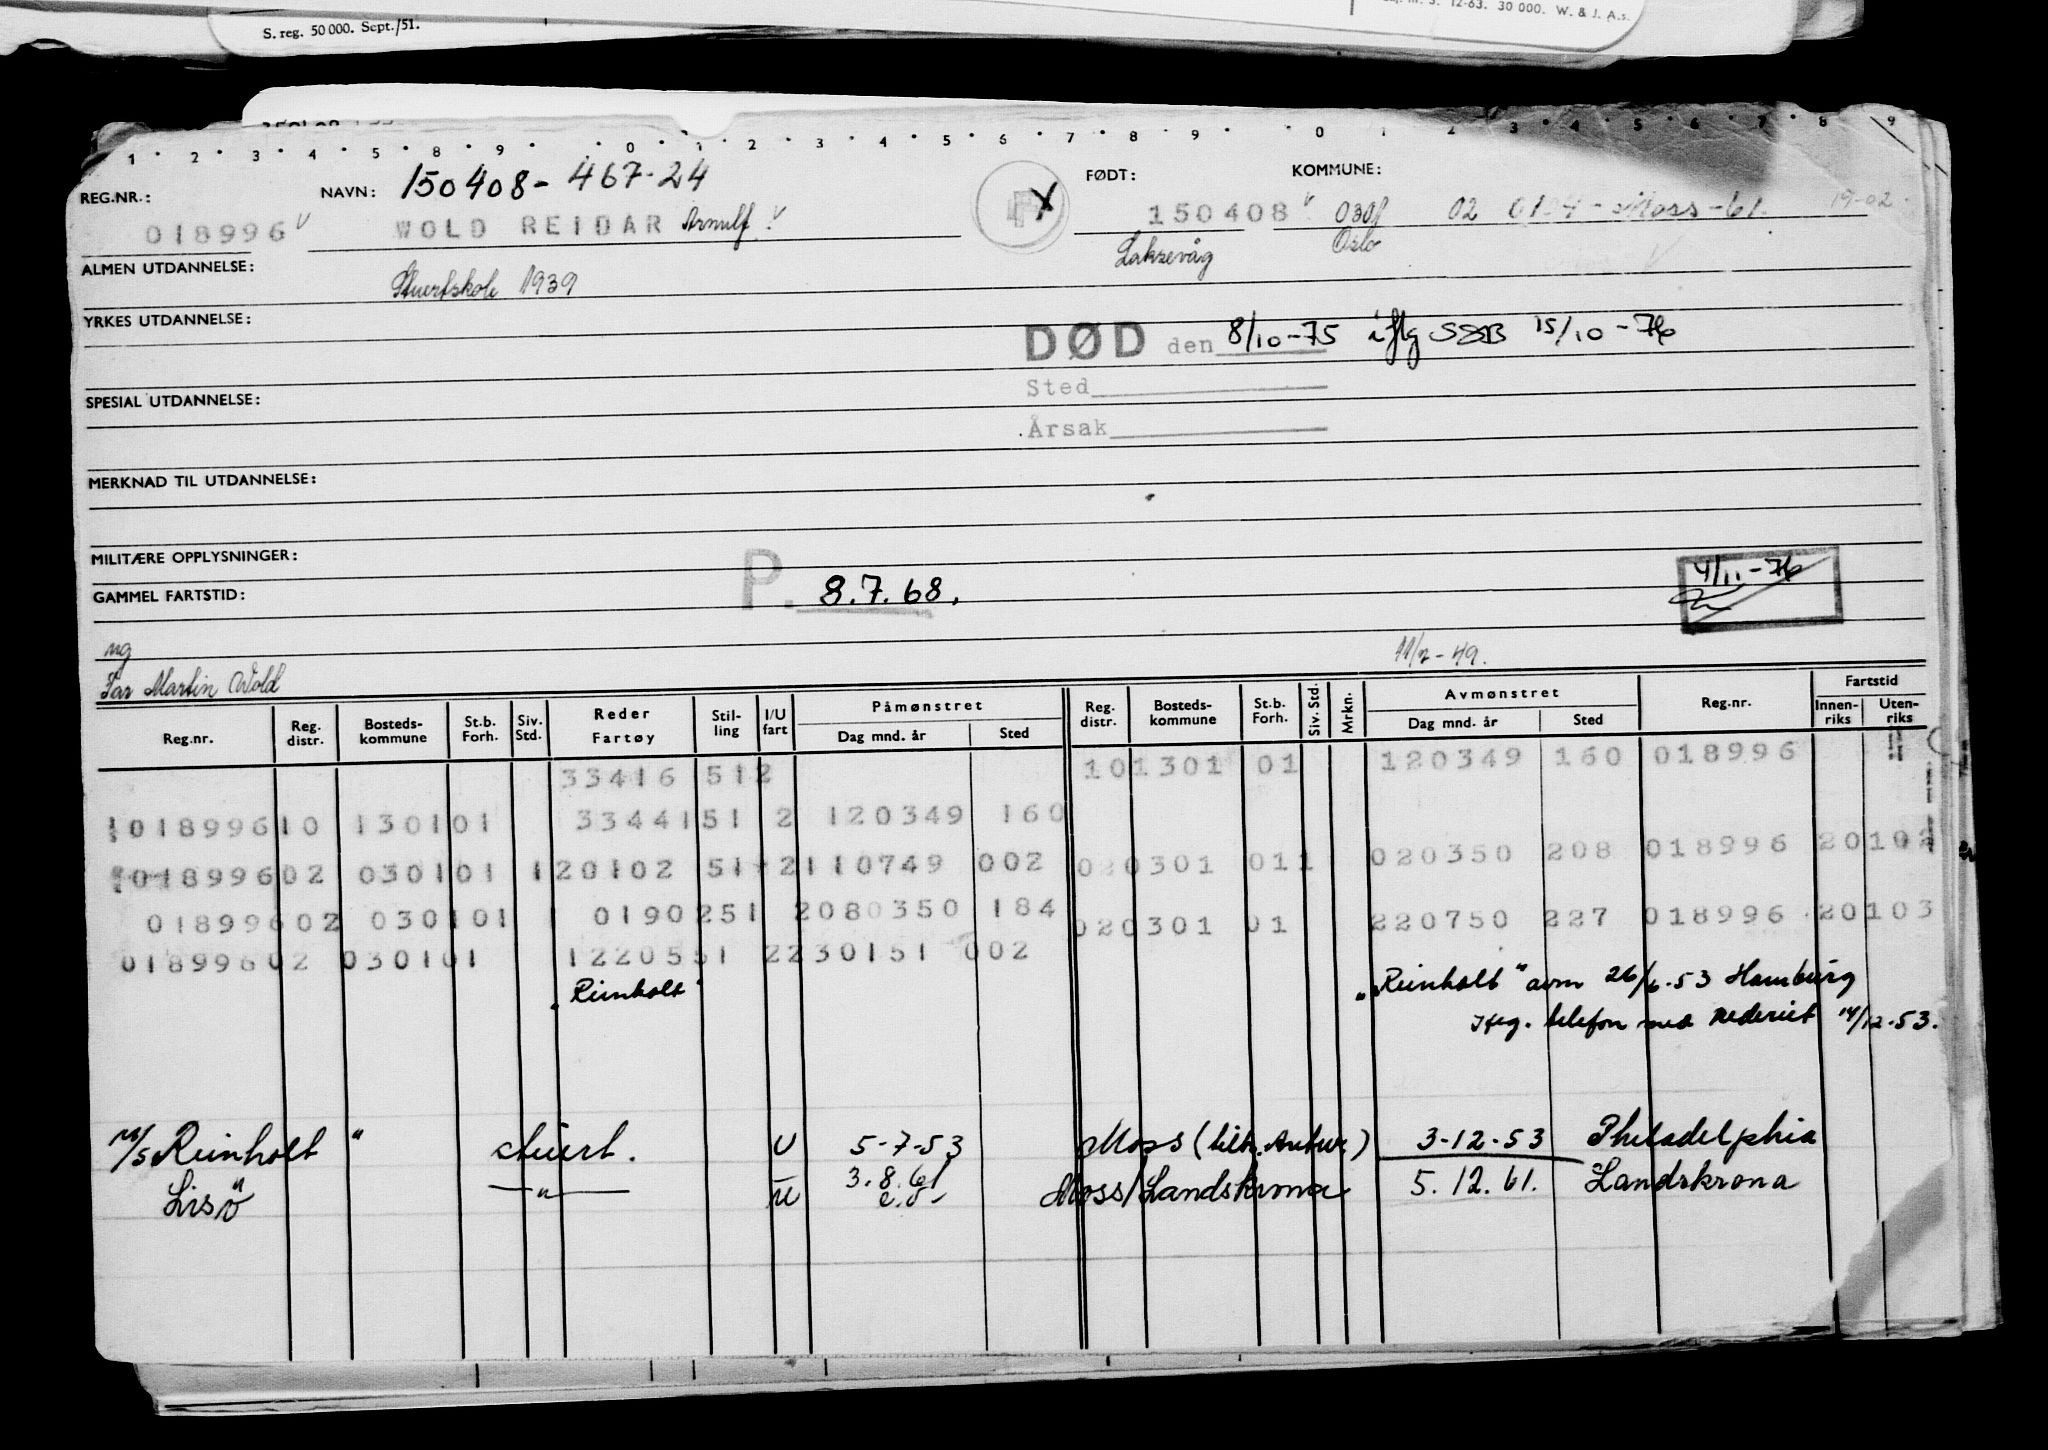 S. reg. 50 000. Sept./51.
12-63. 30 000. W. & J. A.s.
1 · 2 · 3 · 4 · 5 · 8 · 9 · 0 · 1 · 2 · 3 · 4 · 5 · 6 · 7 · 8 · 9 · 0 1 2 3 · 4 · 5 · 6 · 7 · 8 · 9
REG.NR.: NAVN: 150408-467-24 FØDT: KOMMUNE:
018996 v WOLD REIDAR Arnulf v X 150408 v 0301 02 0104 - Moss - 61. 19-02.
Lakzevåg Oslo
ALMEN UTDANNELSE:
Stuertskole 1939
YRKES UTDANNELSE:
DØD den 8/10-75 iflg SSB 15/10-76
Sted
SPESIAL UTDANNELSE:
Årsak
MERKNAD TIL UTDANNELSE:
MILITÆRE OPPLYSNINGER:
GAMMEL FARTSTID: P. 8.7.68. 4/11-76
ng 11/7-49.
Far Martin Wold
Reg.nr. Reg. distr. Bosteds-kommune St.b. Forh. Siv. Std. Reder Fartøy Stil-ling I/U fart Påmønstret Dag mnd. år Sted Reg. distr. Bosteds-kommune St.b. Forh. Siv. Std. Mrkn. Avmønstret Dag mnd. år Sted Reg.nr. Fartstid Innen-riks Uten-riks
33416 512 101301 01 120349 160 018996
101899610 130101 3344151 2 120349 160
020350 208 018996 20102
01899602 030101 120102 51 2110749 002 020301 011
01899602 030101 0190251 2080350 184 020301 01 220750 227 018996 20103
01899602 030101 1220551 2230151 002
"Reinholt" "Reinholt" avm 26/6-53 Hamburg
Iflg. telefon med rederiet 14/12-53.
M/S Reinholt" stuert. U 5-7-53 Moss (tilh. Antw.) 3-12-53 Philadelphia
Lisö — " — U 3.8.61 Moss/Landskrona 5.12.61. Landskrona